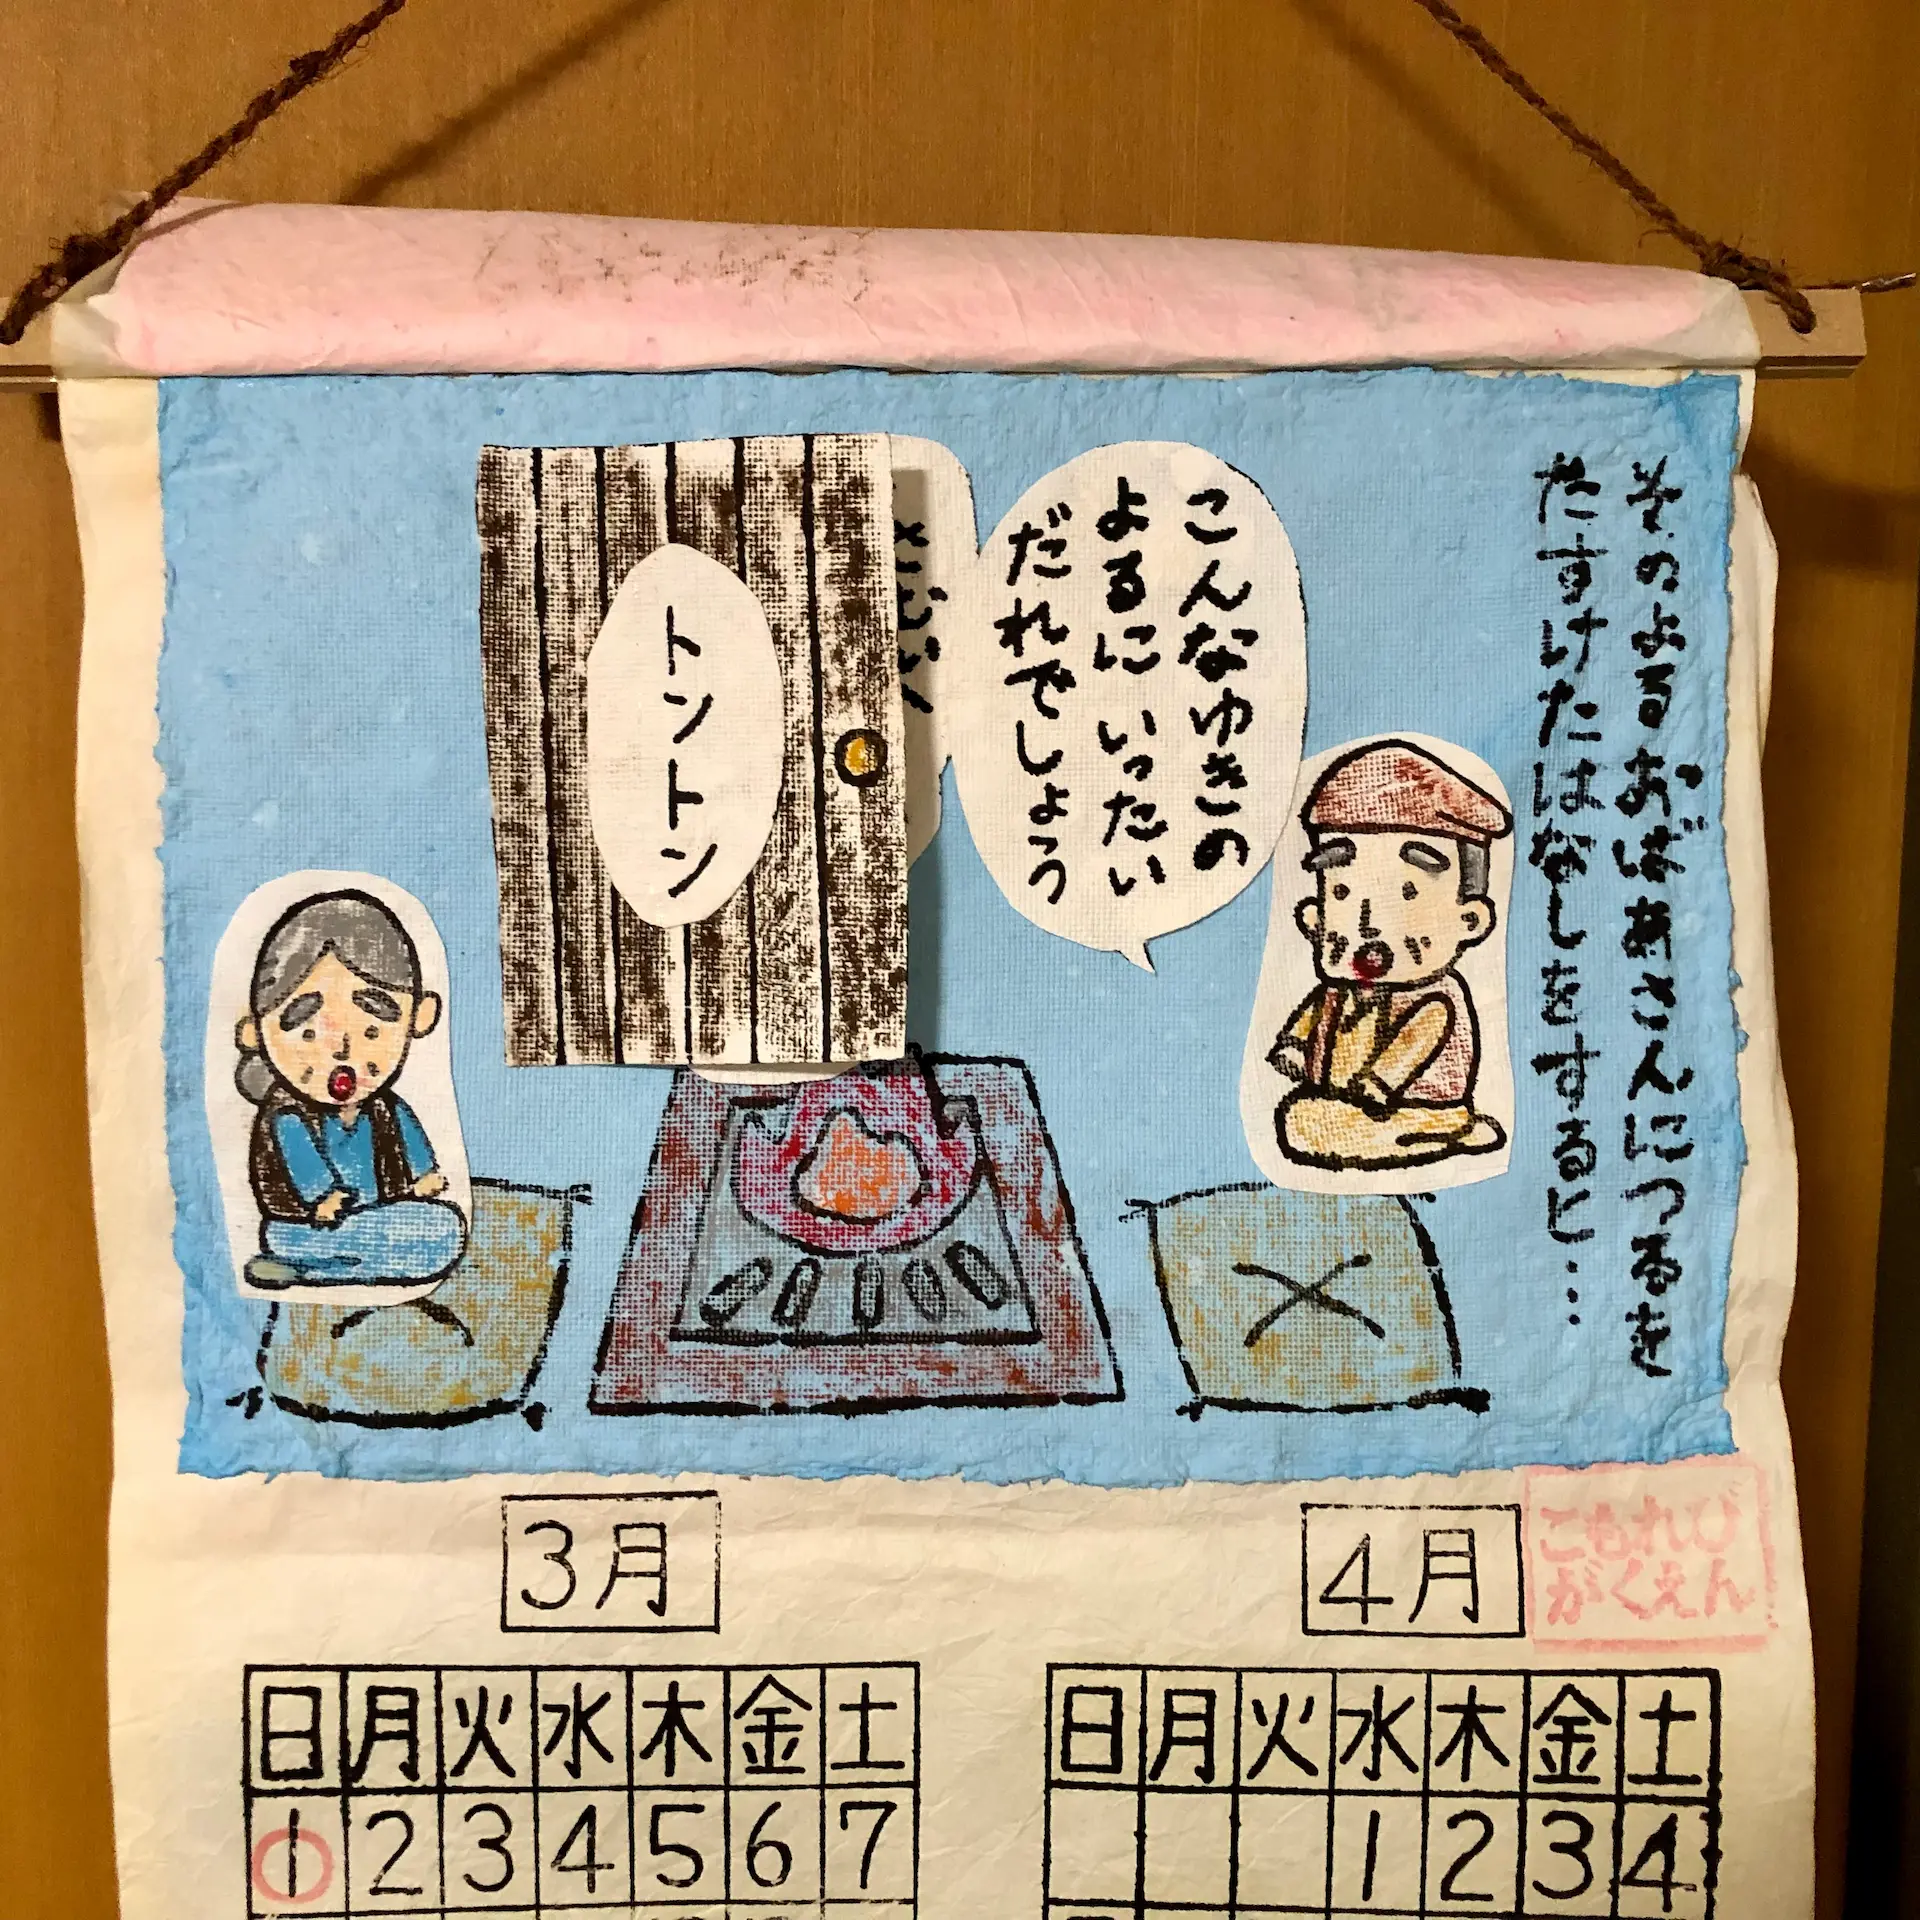 そのよるおばあさんにつるを
たすけたはなしをすると…
こんなゆきの
よるに いったい
だれでしょう
トントン
3月
4月
こもれび
がくえん
日 月 火 水 木 金 土
1 2 3 4 5 6 7
日 月 火 水 木 金 土
1 2 3 4